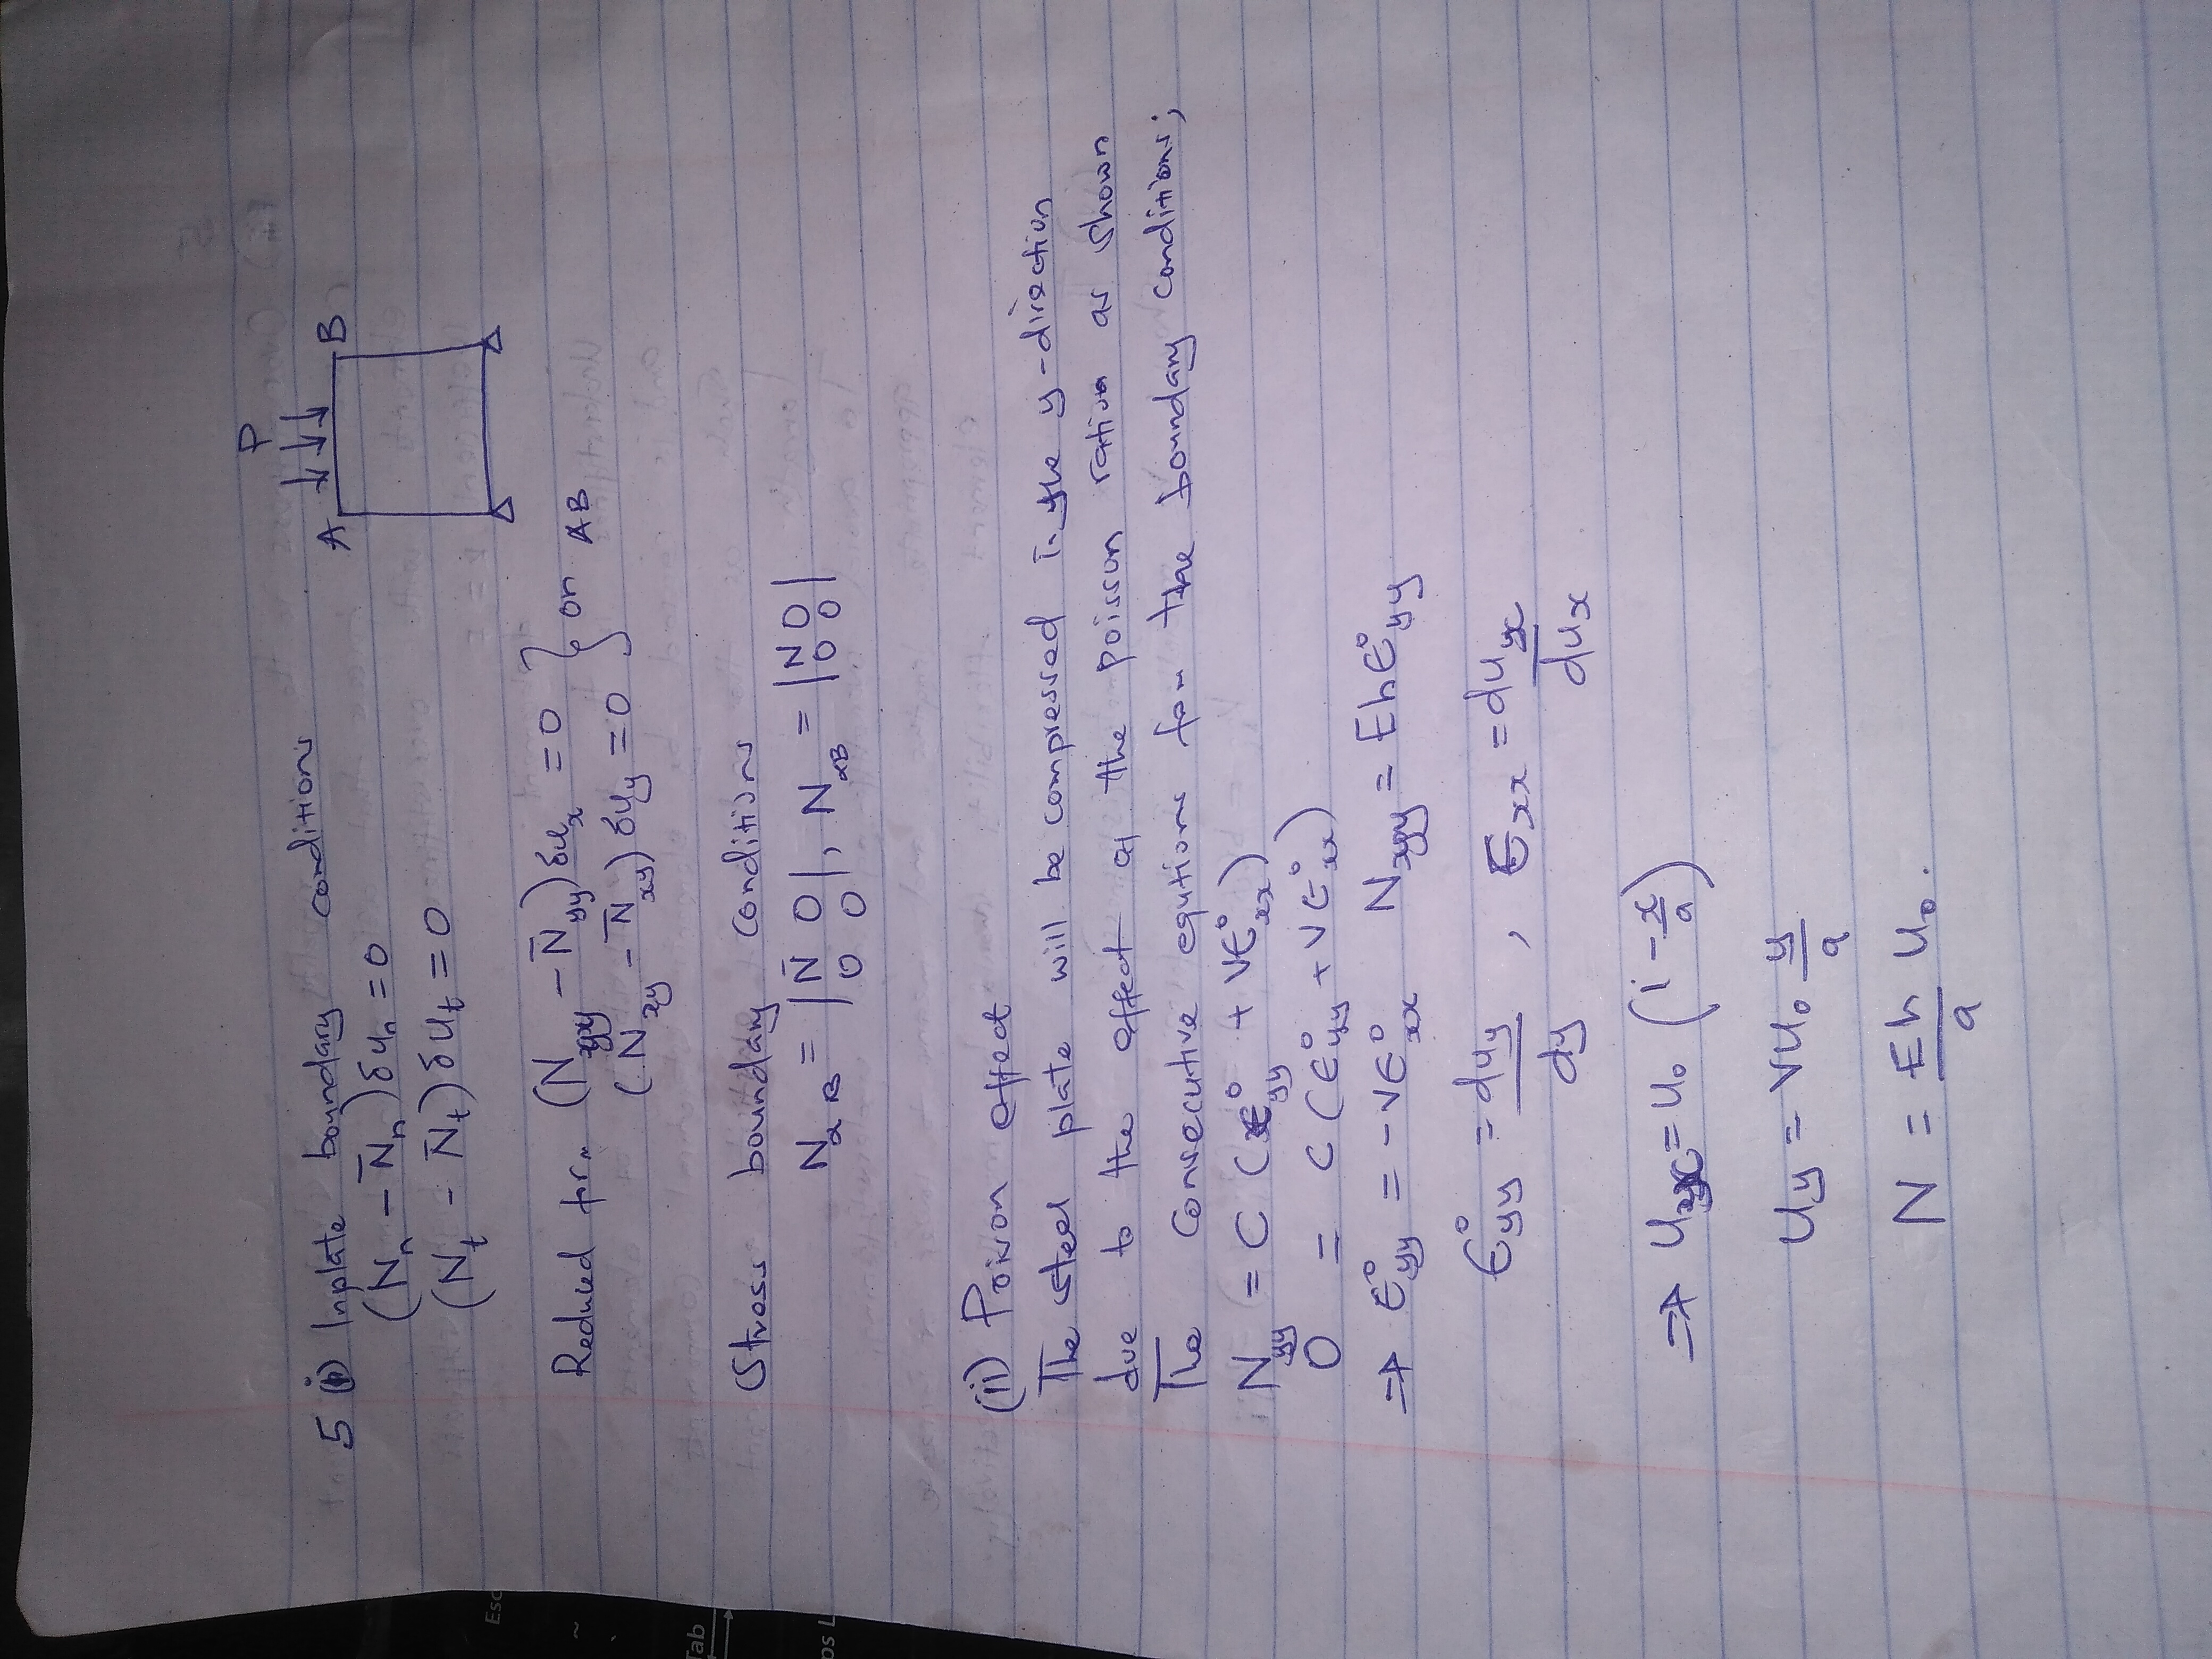 5 (i) Inplate boundary conditions
(N_n - N̄_n) δu_n = 0
(N_t - N̄_t) δu_t = 0
P
A B
Reduced for (N_yy - N̄_yy) δu_x = 0 } on AB
(N_xy - N̄_xy) δu_y = 0
Stress boundary conditions
N_αB = |N̄ 0| , N_αB = |N 0|
0 0 0 0
(ii) Poisson effect
The steel plate will be compressed in the y-direction
due to the effect of the poisson ration as shown
The Consecutive eqution for the boundary conditions;
N_yy = C (ε°_yy + νε°_xx)
0 = C (ε°_yy + νε°_xx)
⇒ ε°_yy = -νε°_xx N_yy = Ehε°_yy
ε°_yy = du_y/dy , ε_xx = du_x/du_x
⇒ u_x = u_0 (1 - x/a)
u_y = νu_0 y/a
N = Eh/a u_0.
Esc
~
Tab
ps L